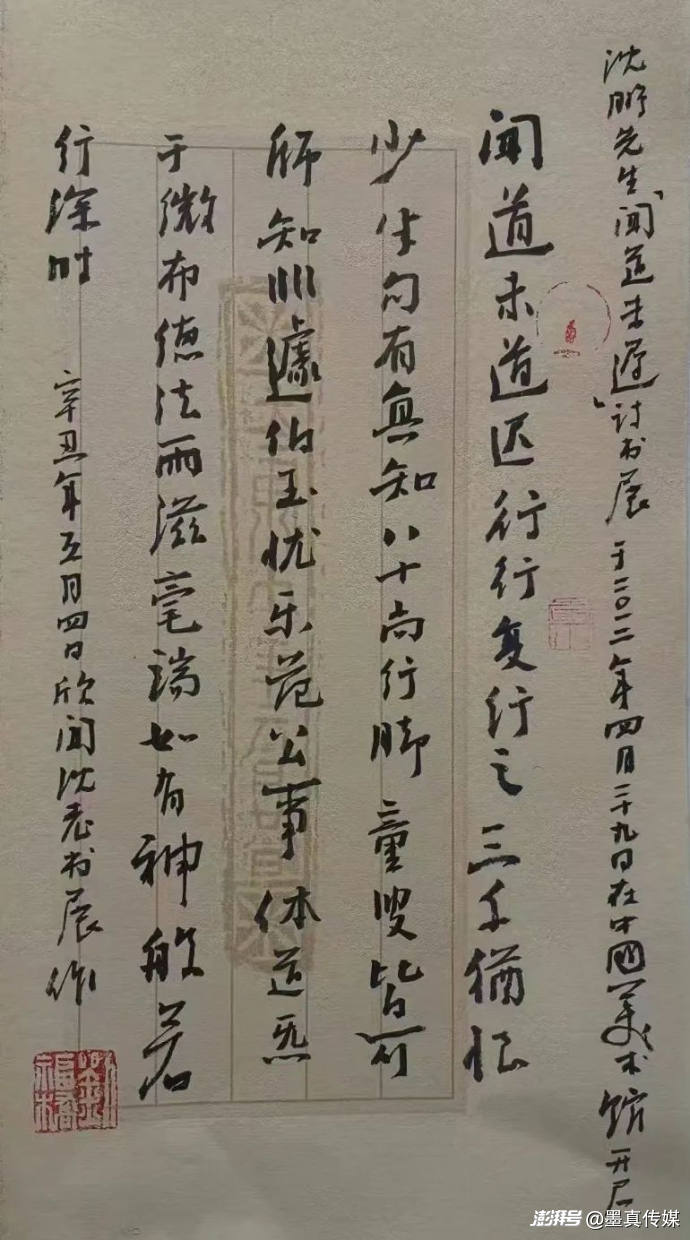 沈鹏先生「闻道未迟」诗书展于二〇二二年四月二十九日在中國美术馆开启
闻道未道迟行行复行之三千猶恨
少半句有真知八十尚行脚童叟皆可
师知非蘧伯玉忧乐范公事体道炁
于微布德法雨滋毫端如有神般若
行深时
辛丑年五月四日欣闻沈老书展作
澎湃号@墨真传媒